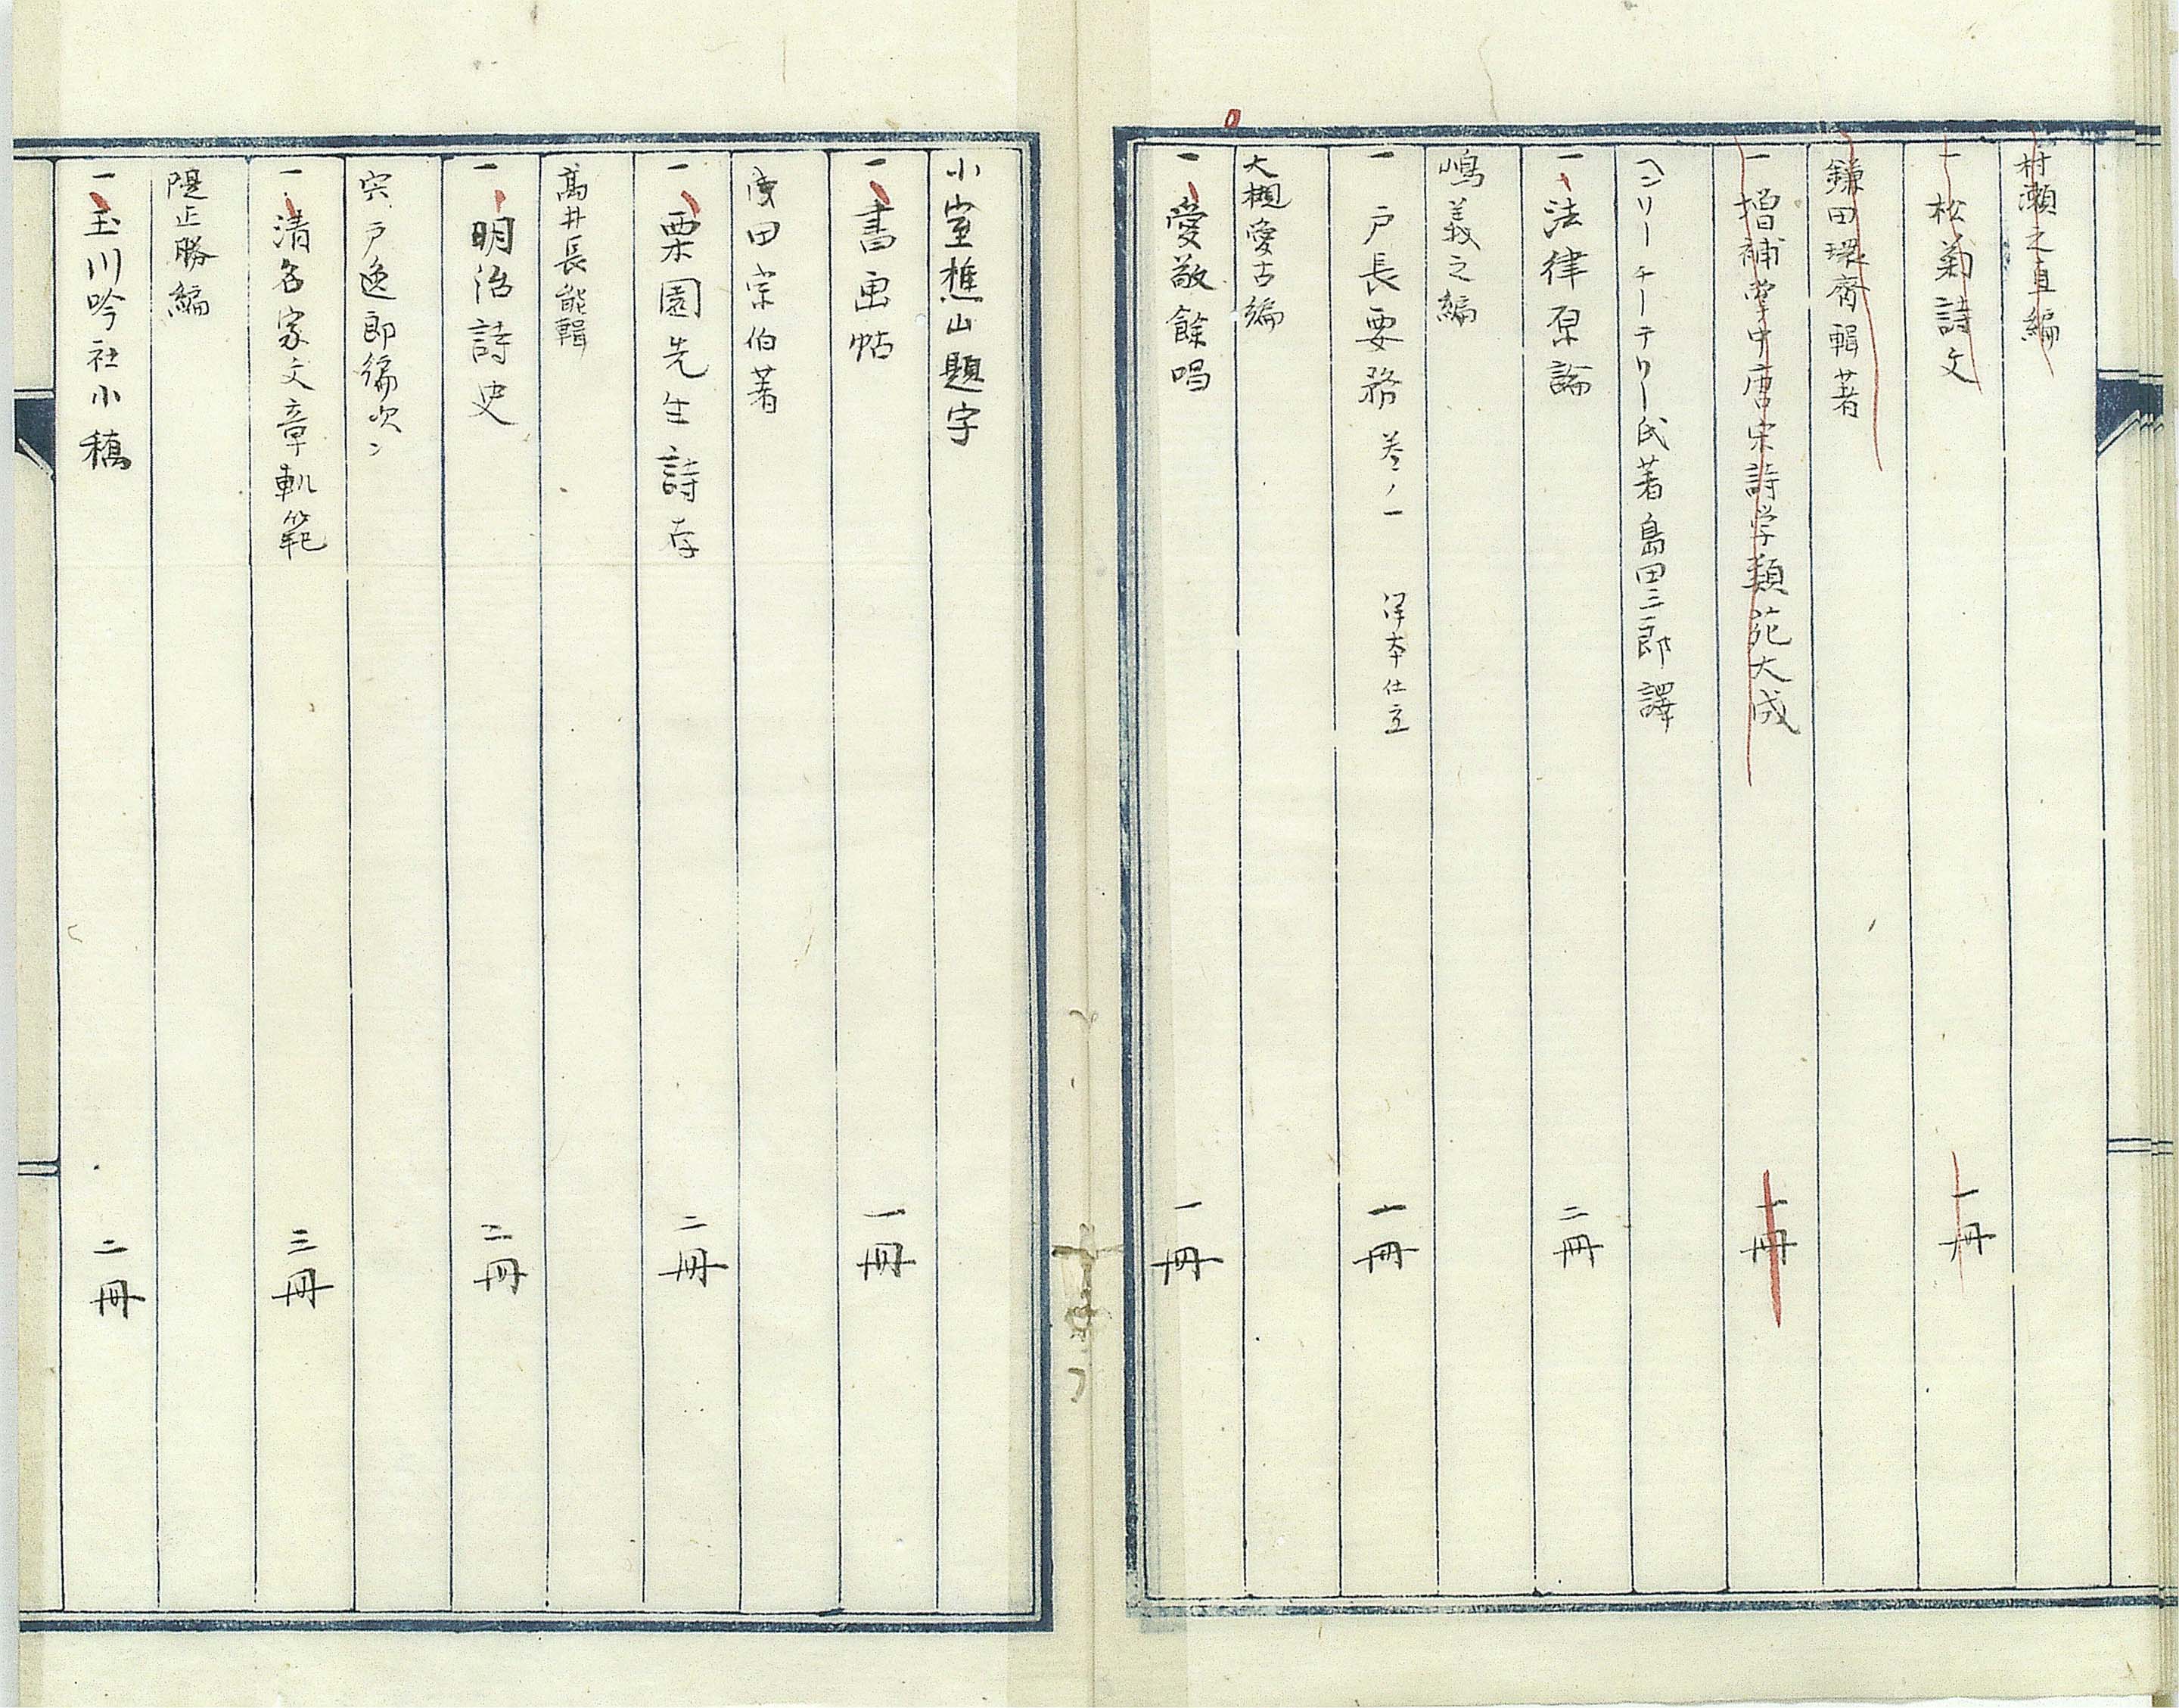 村瀬之直編
一 松菊詩文 一冊
鎌田環齋輯著
一 増補掌中唐宋詩学類苑大成 一冊
ヘンリーチーテリー氏著 島田三郎 譯
一 法律原論 二冊
嶋義之編
一 戸長要務 巻ノ一 洋本仕立 一冊
大槻愛古編
一 愛敬餘唱 一冊
小室樵山題字
一 書画帖 一冊
田宗伯著
一 栗園先生詩存 二冊
髙井長能輯
一 明治詩史 二冊
宍戸逸郎編次
一 清名家文章軌範 三冊
隄正勝編
一 玉川吟社小稿 二冊